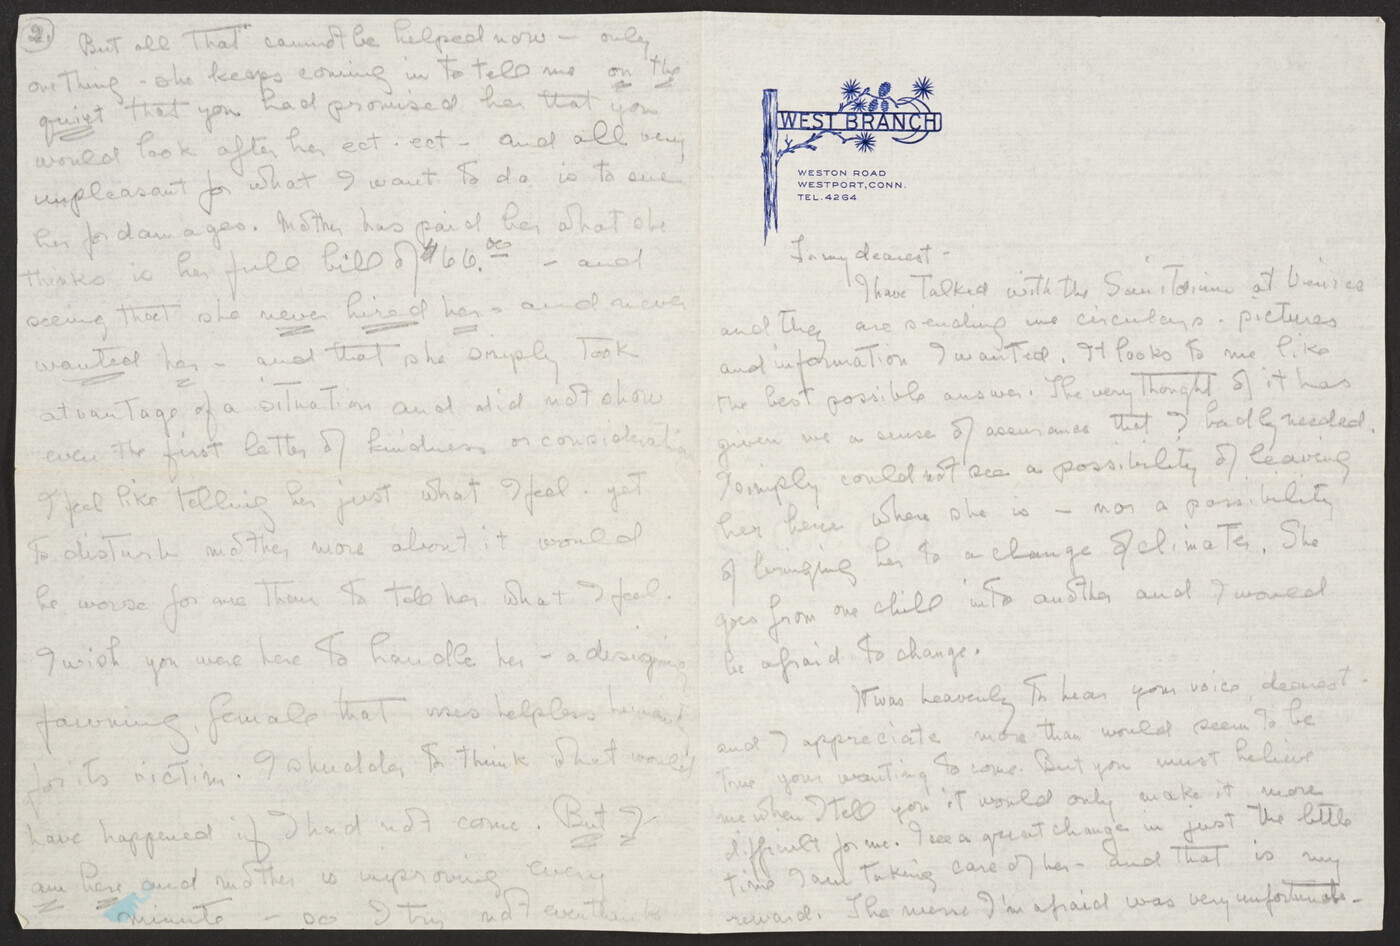 WEST BRANCH
WESTON ROAD
WESTPORT, CONN.
TEL. 4264
In my dearest -
I have talked with the Sanitorium at Venice
and they are sending me circulars - pictures
and information I wanted. It looks to me like
the best possible answer. The very thought of it has
given me a sense of assurance that I badly needed.
I simply could not see a possibility of leaving
her here where she is - nor a possibility
of bringing her to a change of climate. She
goes from one chill into another and I would
be afraid to change.
It was heavenly to hear your voice, dearest -
and I appreciate more than would seem to be
true your wanting to come. But you must believe
me when I tell you it would only make it more
difficult for me. I see a great change in just the little
time I am taking care of her - and that is my
reward. The nurse I'm afraid was very unfortunate -
2.
But all that cannot be helped now - only
one thing - she keeps coming in to tell me on the
quiet that you had promised her that you
would look after her ect. ect - and all very
unpleasant for what I want to do is to sue
her for damages. Mother has paid her what she
thinks is her full bill of $66.00 - and
seeing that she never hired her - and never
wanted her - and that she simply took
atvantage of a situation and did not show
even the first letter of kindness or consideration
I feel like telling her just what I feel - yet
to disturb mother more about it would
be worse for me than to tell her what I feel.
I wish you were here to handle her - a designing
fawning, female that uses helpless
for its victim. I shudder to think what would
have happened if I had not come. But I
am here and mother is improving every
minute - so I try not even think